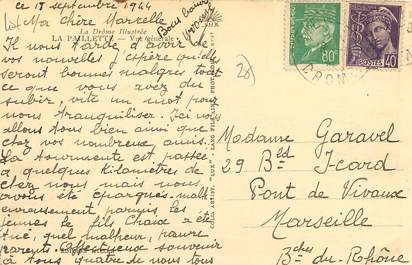 ce 15 septembre 1944
Ma chère Marcelle
La Drôme Illustrée
LA PAILLETTE — Vue générale
Il nous tarde, d'avoir de
vos nouvelles j'espère qu'elle
seront bonnes malgrès tout
ce que vous avez du
subir, vite un mot pour
nous tranquiliser. Ici vous
allons tous bien ainsi que
chez vos nombreux amis.
La Tourmente est passée
a quelques Kilomètres de
chez nous mais nous
avons été épargnés. malh-
eureusement, parmis les
jeunes le fils Chaix a été
tué, quel malheur, pauvre
parent. Affectueux souvenir
à Tous quatre de nous tous
Bons baisers
80c
POSTES
40c
DROME
Madame Garavel
29 Bld Icard
Pont de Vivaux
Marseille
Bches du-Rhône